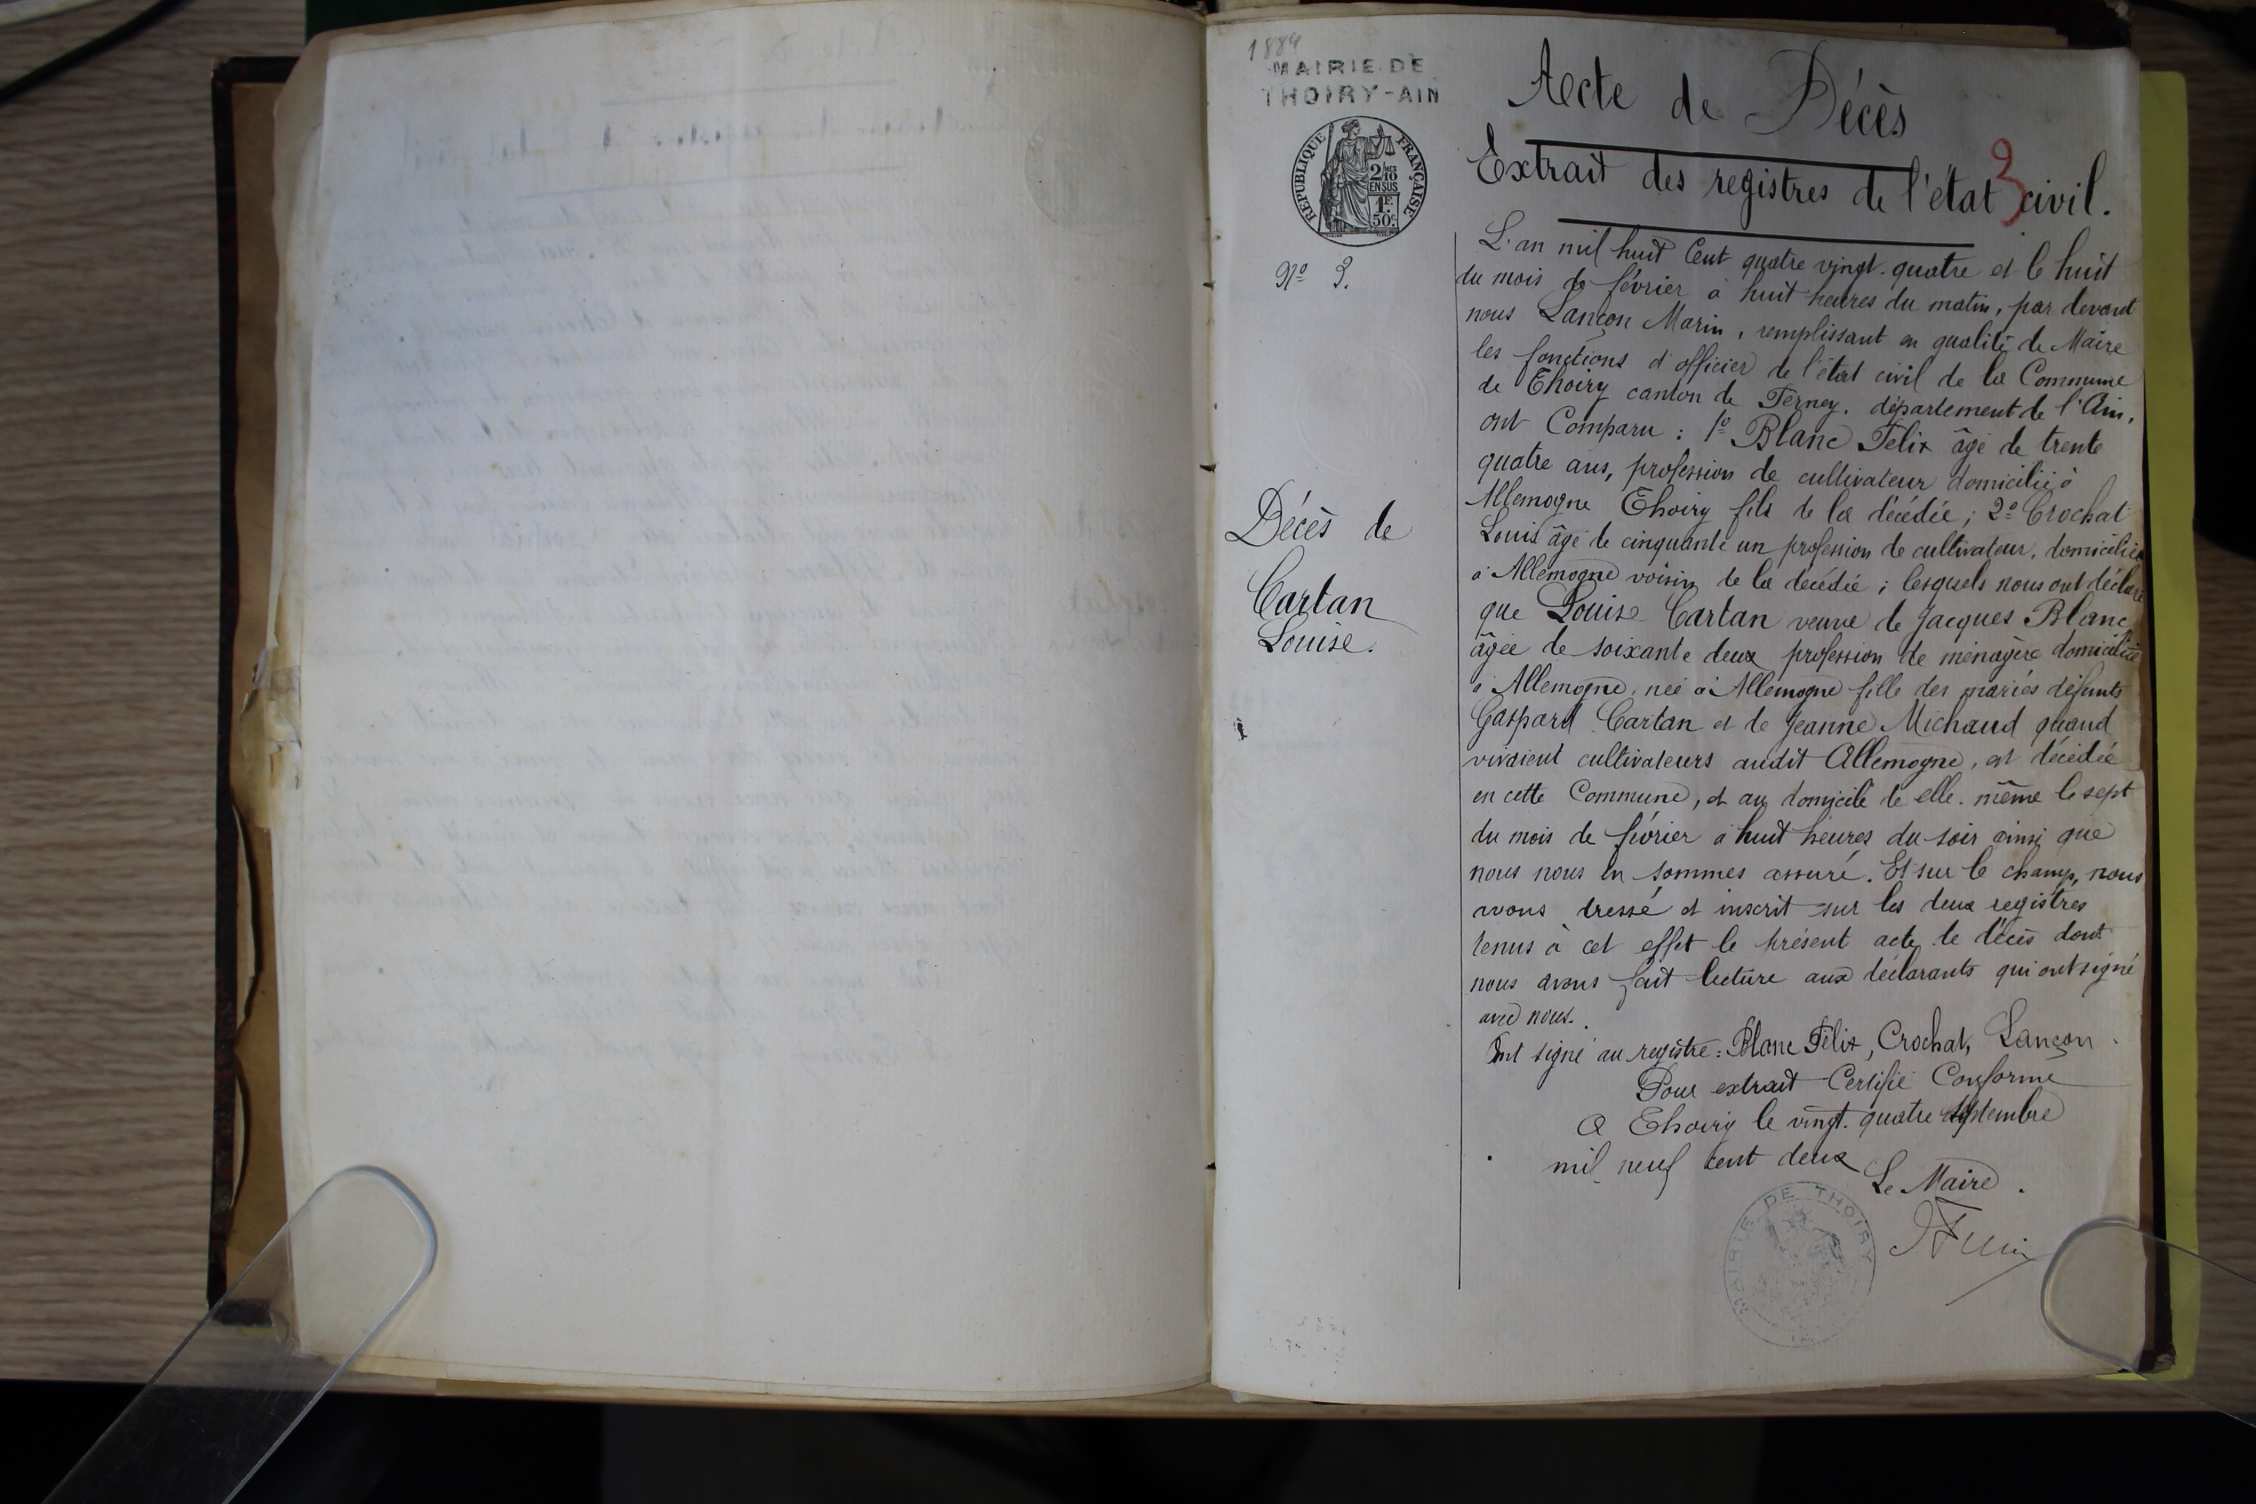 1884
MAIRIE DE
THOIRY-AIN
RÉPUBLIQUE FRANÇAISE
2/10
EN SUS
1F.
50c.
Nº 3.
Décès de
Cartan
Louise.
Acte de Décès
Extrait des registres de l'état civil.
3
L'an mil huit Cent quatre vingt-quatre et le huit
du mois de février à huit heures du matin, par devant
nous Lançon Marin, remplissant en qualité de Maire
les fonctions d'officier de l'état civil de la Commune
de Thoiry canton de Ferney, département de l'Ain,
ont Comparu : 1º Blanc Félix âgé de trente
quatre ans, profession de cultivateur domicilié à
Allemogne Thoiry fils de la décédée ; 2º Crochat
Louis âgé de cinquante un profession de cultivateur, domicilié
à Allemogne voisin de la décédée ; lesquels nous ont déclaré
que Louise Cartan veuve de Jacques Blanc
âgée de soixante deux profession de ménagère domiciliée
à Allemogne, née à Allemogne fille des mariés défunts
Gaspard Cartan et de Jeanne Michaud quand
vivaient cultivateurs audit Allemogne, est décédée
en cette Commune, et au domicile de elle-même le sept
du mois de février à huit heures du soir ainsi que
nous nous en sommes assuré. Et sur le champ, nous
avons dressé et inscrit sur les deux registres
tenus à cet effet le présent acte de décès dont
nous avons fait lecture aux déclarants qui ont signé
avec nous.
Ont signé au registre : Blanc Félix, Crochat, Lançon.
Pour extrait Certifié Conforme
A Thoiry le vingt-quatre septembre
mil neuf cent deux
Le Maire.
MAIRIE DE THOIRY